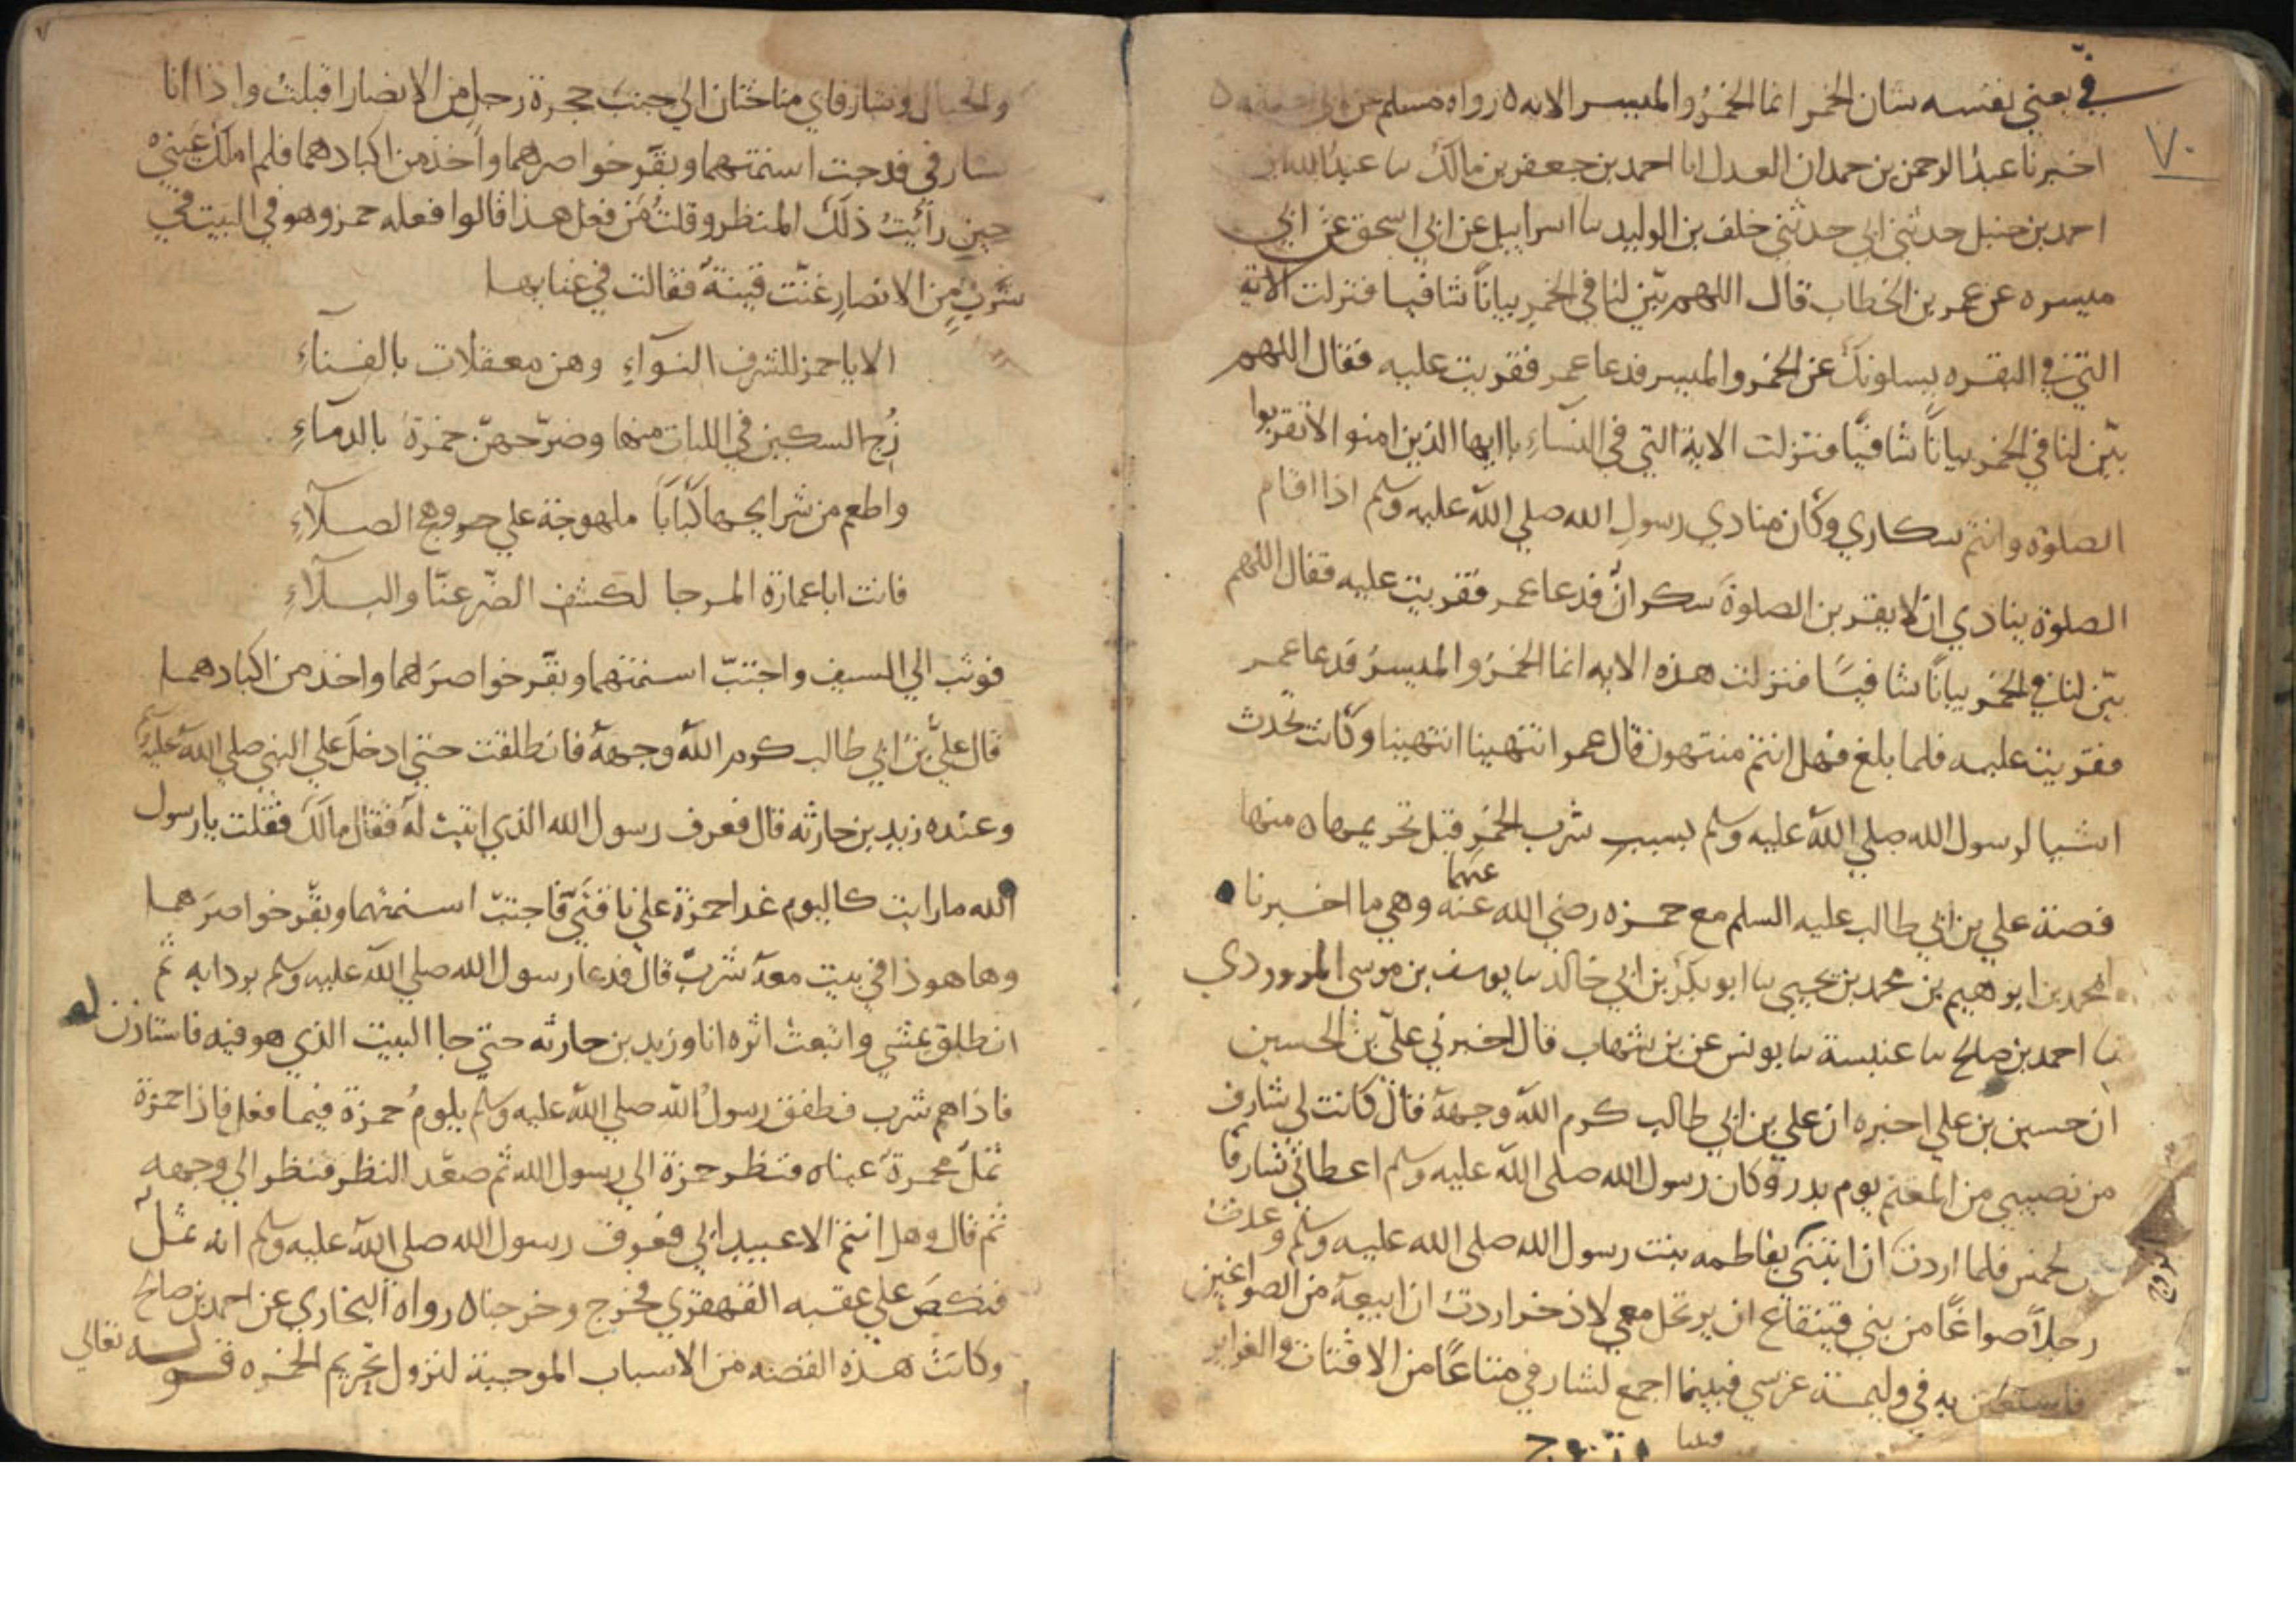 في يعني نفسه شان الخمر انما الخمر والميسر الايه ه رواه مسلم عن
٧٠
اخبرنا عبد الرحمن بن حمدان العدل انا احمد بن جعفر بن مالك ثنا عبد الله بن
احمد بن حنبل حدثني ابي حدثني خلف بن الوليد ثنا اسراييل عن ابي اسحق عن ابي
ميسره عن عمر بن الخطاب قال اللهم بيّن لنا في الخمر بيانًا شافيا فنزلت الاية
التي في البقره يسلونك عن الخمر والميسر فدعا عمر فقريت عليه فقال اللهم
بيّن لنا في الخمر بيانًا شافيًا فنزلت الاية التي في النسآءِ ياايها الذين امنوا لاتقربوا
الصلوة وانتم سكاري وكان منادي رسولِ الله صلي الله عليه وسلم اذا اقام
الصلوة ينادي ان لا يقربن الصلوةَ سكران فدعا عمر فقريت عليه فقال اللهم
بيّن لنا في الخمر بيانًا شافيًا فنزلت هذه الايه انما الخمرُ والميسرُ فدعا عمر
فقريت عليه فلما بلغ فهل انتم منتهون قال عمر انتهينا انتهينا وكانت تحدث
اشيا لرسول الله صلي الله عليه وسلم بسببِ شرب الخمرِ قبل تحريمها ه منها
قصة علي بن ابي طالب عليه السلم مع حمزه رضي الله عنه وهي ما اخبرنا
عنهما
محمد بن ابرهيم بن محمد بن يحيي ثنا ابو بكر بن ابي خالد ثنا يوسف بن موسي المروردي
ثنا احمد بن صالح ثنا عنبسة ثنا يونس عن بن شهاب قال اخبرني عليّ بن الحسين
ان حسين بن علي اخبره ان علي بن ابي طالب كرم الله وجهه قال كانت لي شارف
من نصيبي من المغنم يوم بدر وكان رسول الله صلى الله عليه وسلم اعطاني شارفًا
من الخمس فلما اردت ان ابتني بفاطمه بنت رسول الله صلى الله عليه وسلم وعدت
رجلاً صواغًا من بني قينقاع ان يرتحل معي لاذخر اردتُ ان ابيعه من الصواغين
فاستعين به في وليمة عرسي فبينما اجمع لشارفي متاعًا من الاقتاب والغراير
فبينا
والحبال وشارفاي مناختان الي جنب حجرة رجلٍ من الانصار اقبلت واذا انا
بشارفي قد جبت اسنمتهما وبقر خواصرهما واخذ من اكبادهما فلم املك عينيّ
حين رأيت ذلك المنظر وقلت من فعل هذا قالوا فعله حمزه وهو في البيت في
شَربٍ من الانصارِ غنّت قينةٌ فقالت في غنايها
الا يا حمز للشرف النوآءِ وهن معقلات بالفنآءِ
زُج السكين في اللبات منها وضرّجهنّ حمزةُ بالدمآءِ
واطعم من شرايحها كبابًا ملهوجة علي جر وهج الصلآءِ
فانت ابا عمارة المرجا لكشف الضّر عنّا والبلآءِ
فوثب الي السيف واجتبّ اسنمتهما وبقر خواصرَهما واخذ من اكبادهما
قال عليُّ بن ابي طالب كرم الله وجهه فانطلقت حتي ادخل علي النبي صلي الله عليه وسلم
وعنده زيد بن حارثه قال فعرف رسول الله الذي اتيت له فقال مالك فقلت يا رسول
الله ما رايت كاليوم غدا حمزة علي ناقتيّ فاجتبّ اسنمتهما وبقّر خواصرَهما
وها هو ذا في بيت معه شربٌ قال فدعا رسول الله صلي الله عليه وسلم بردايه ثم
انطلق يمشي واتبعت اثره انا وزيد بن حارثه حتي جا البيت الذي هو فيه فاستاذن له
فاذا هم شرب فطفق رسولُ الله صلي الله عليه وسلم يلومُ حمزة فيما فعل فاذا حمزة
ثمل محمرة عيناه فنظر حمزة الي رسول الله ثم صعّد النظر فنظر الي وجهه
ثم قال وهل انتم الا عبيد ابي فعرف رسول الله صلي الله عليه وسلم انه ثمل
فنكصَ علي عقبه القهقري فخرج وخرجنا ه رواه البخاري عن احمد بن صالح
وكانت هذه القصه من الاسباب الموجبة لنزول تحريم الخمر ه قوله تعالي